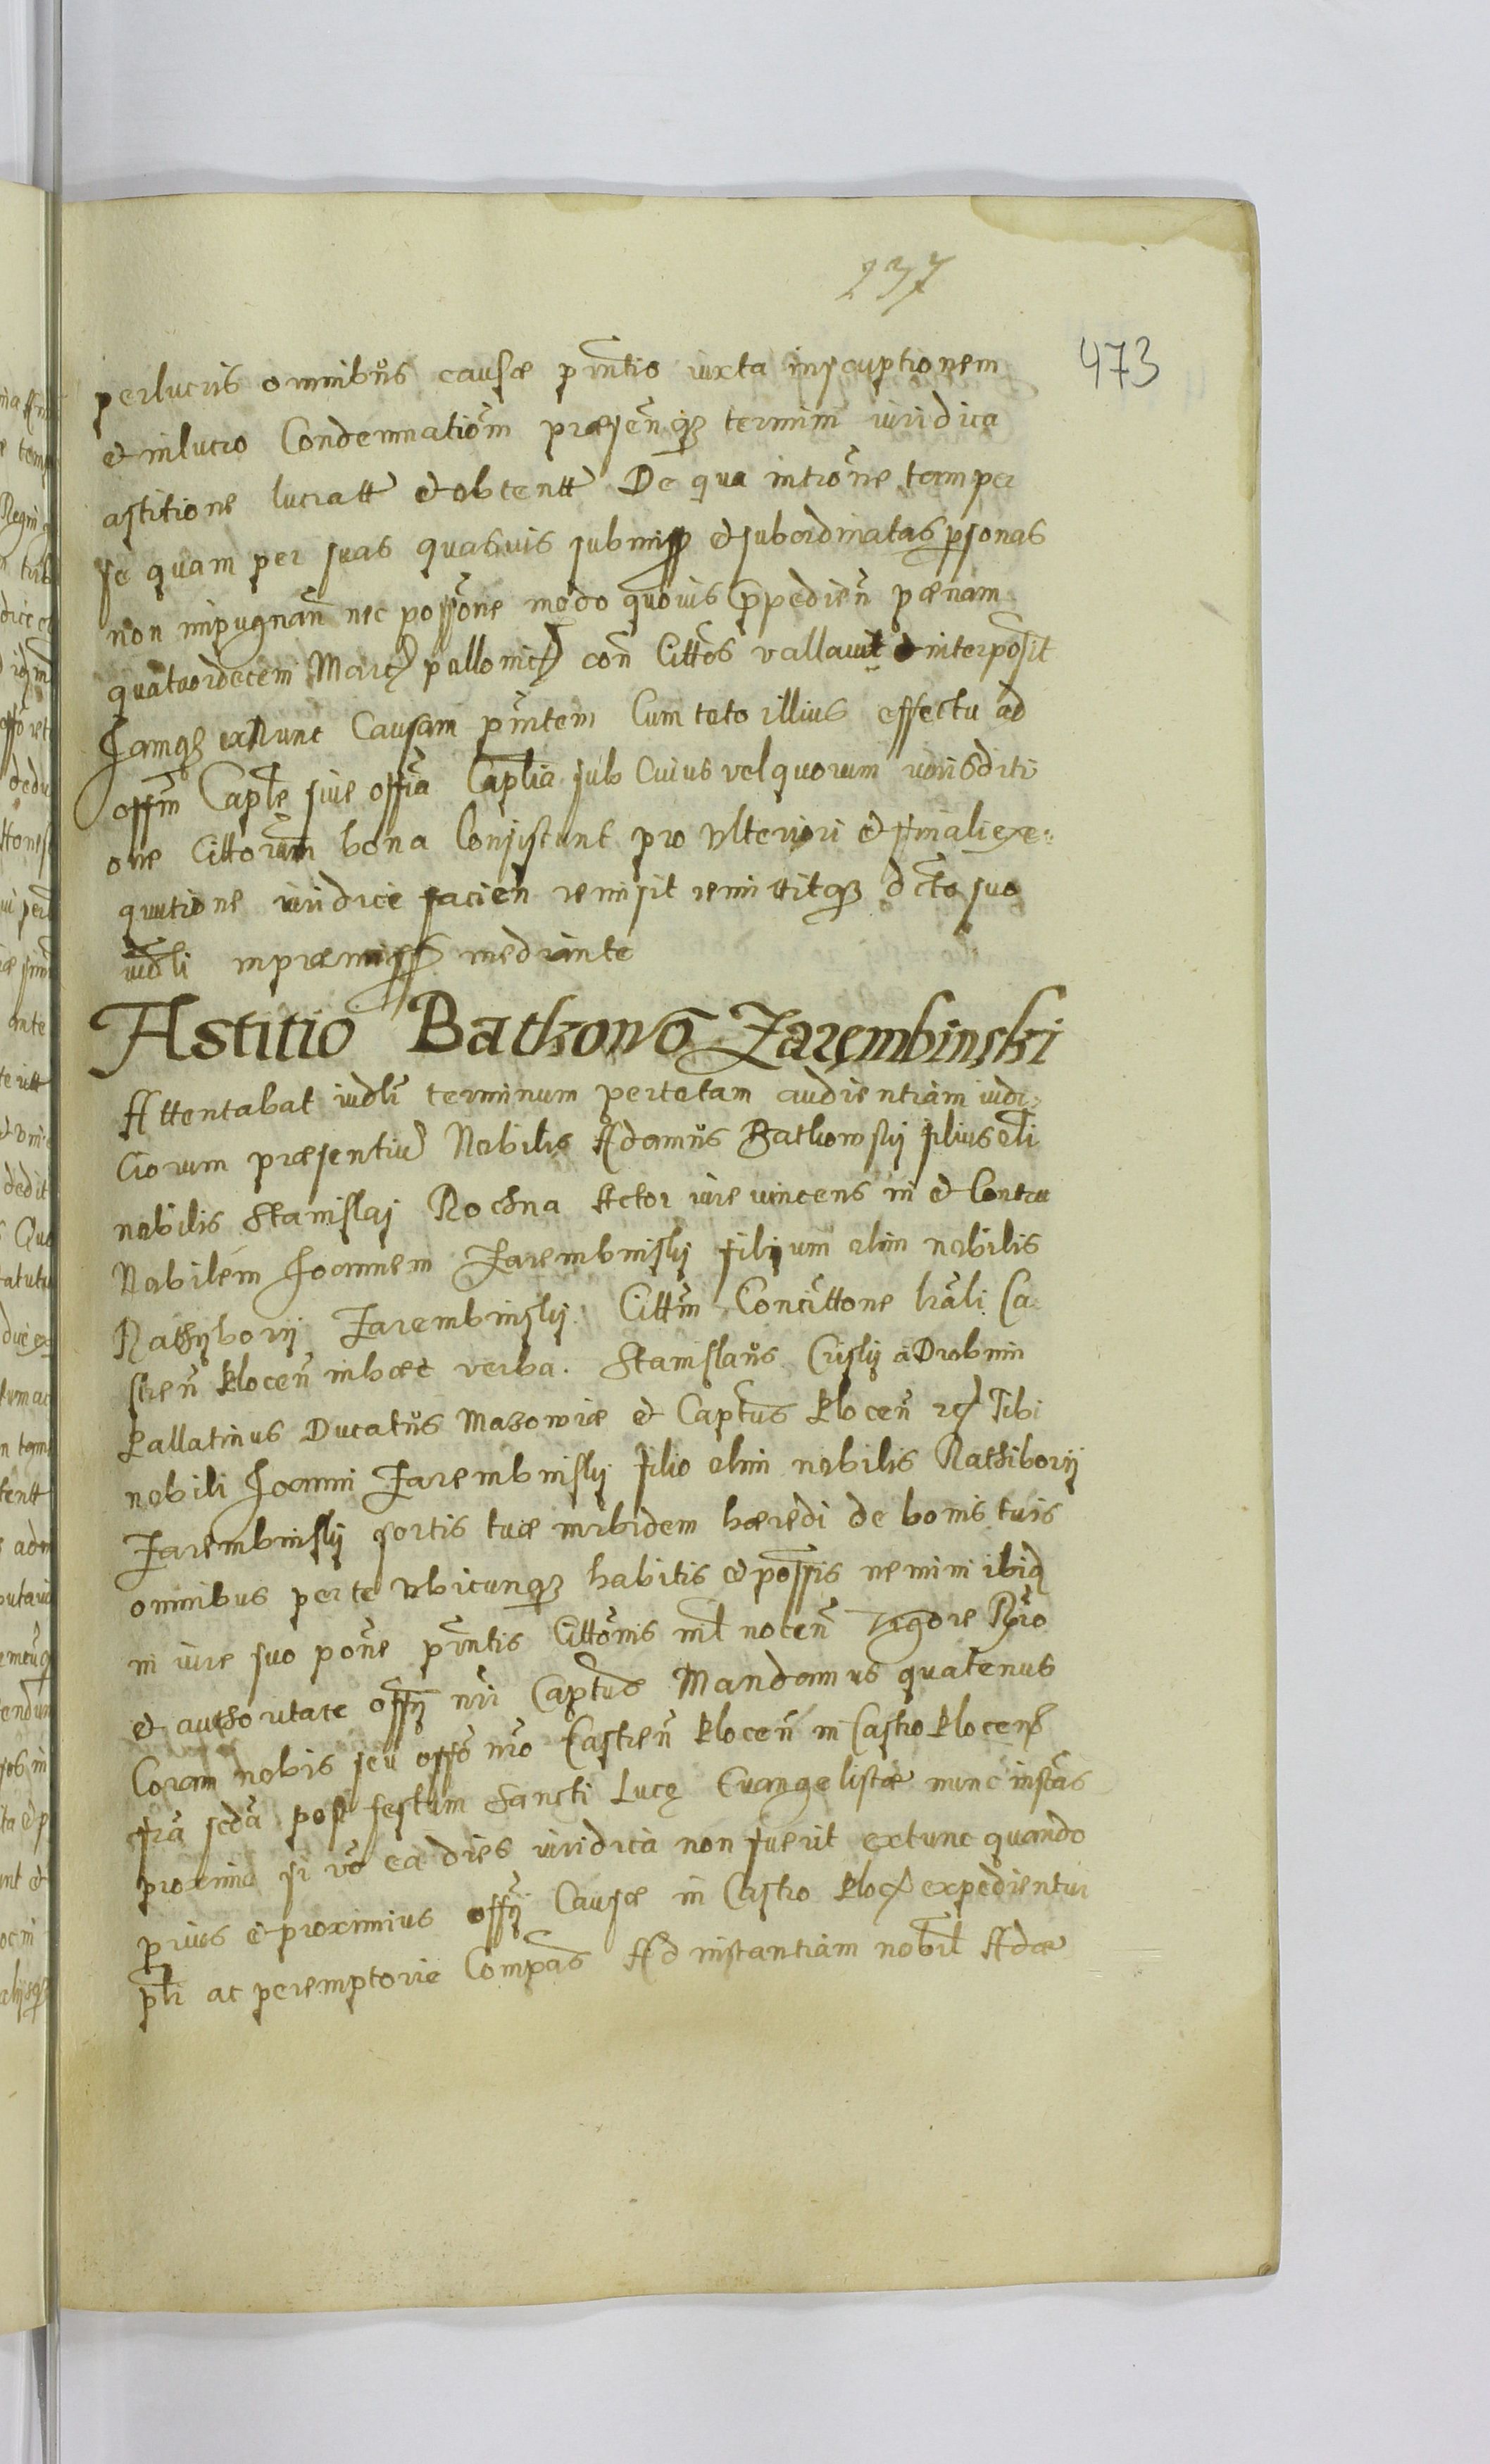 237
473
perlucris omnibus causæ pñtis iuxta inscriptionem
et in lucro Condemnatiom̃ præsenq3 termini iuridica
astitione lucratt et obtentt De qua intrõne tam per
se quam per suas quasuis submiss et subordinatas psonas
non impugnañ nec possõne modo quouis ppedien̄ pœnam
quatuordecem Marc pollonic con Cittos vallauit et interposit
Jamq3 ex nunc Causam pñtem Cum toto illius effectu ad
offm̃ Caplẽ siue offia Caplia sub Cuius vel quorum iurisditi
one Cittorum bona Consistunt pro vlteriori et finali exe
quutione iuridice facien̄ remisit remittitq3 dcto suo
iudli in præmiss mediante
Astitio Bathowõ Zarembinski
Attentabat iudlr terminum per totam audientiam iudi
ciorum præsentium Nobilis Adamus Bathowskij filius oli
nobilis Stanislai Rochna Actor iure vincens in et Contra
Nobilem Joannem Zarembinskij filium olim nobilis
Rathyborij Zarembinskij Cittm̃ Concittone lrali Ca
stren̄ Plocen̄ in hæc verba. Stanislaus Criskij a Drobnin
Pallatinus Ducatus Mazowiæ et Captus Plocen̄ etc Tibi
nobili Joanni Zarembinskij filio olim nobilis Rathiborij
Zarembinskij sortis tuæ inibidem hæredi de bonis tuis
omnibus per te vbicunq3 habitis et possis nemini ibiq
in iure suo põne pñtis Cittõnis nil nocen̄ Vigore Rgio
et authoritate offij nri Captus Mandamus quatenus
Coram nobis seu offo nro Castren̄ Plocen̄ in Castro Plocens
fria scda post festum Sancti Lucę Euangelistæ nunc instãs
proxima si vo ea dies iuridica non fuerit extunc quando
prius et proximius offij Causæ in Castro Ploc expedientur
plr ac peremptorie Compas Ad instantiam nobil Adæ